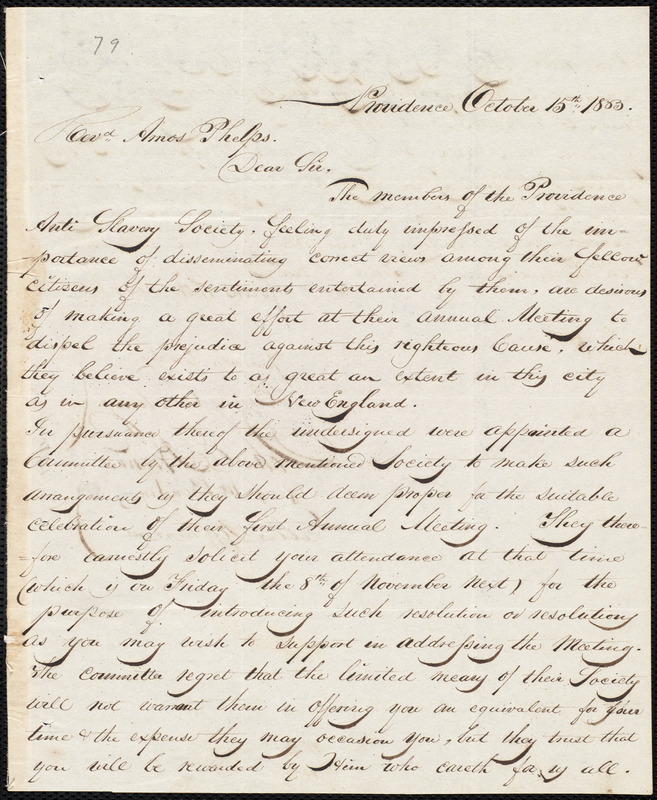 79
Providence, October 15th 1833.
Revd Amos Phelps.
Dear Sir,
The members of the Providence
Anti Slavery Society, feeling duly impressed of the im-
portance of disseminating correct views among their fellow
citizens of the sentiments entertained by them, are desirous
of making a great effort at their annual Meeting to
dispel the prejudice against this righteous Cause, which
they believe exists to as great an extent in this city
as in any other in New England.
In pursuance thereof the undersigned were appointed a
Committee by the above mentioned Society to make such
arrangements as they should deem proper for the suitable
celebration of their first Annual Meeting. They there-
=fore earnestly solicit your attendance at that time
(which is on Friday the 8th of November next) for the
purpose of introducing such resolution or resolutions
as you may wish to support in addressing the Meeting.
The committee regret that the limited means of their Society
will not warrant them in offering you an equivalent for your
time & the expense they may occasion you, but they trust that
you will be rewarded by Him who careth for us all.